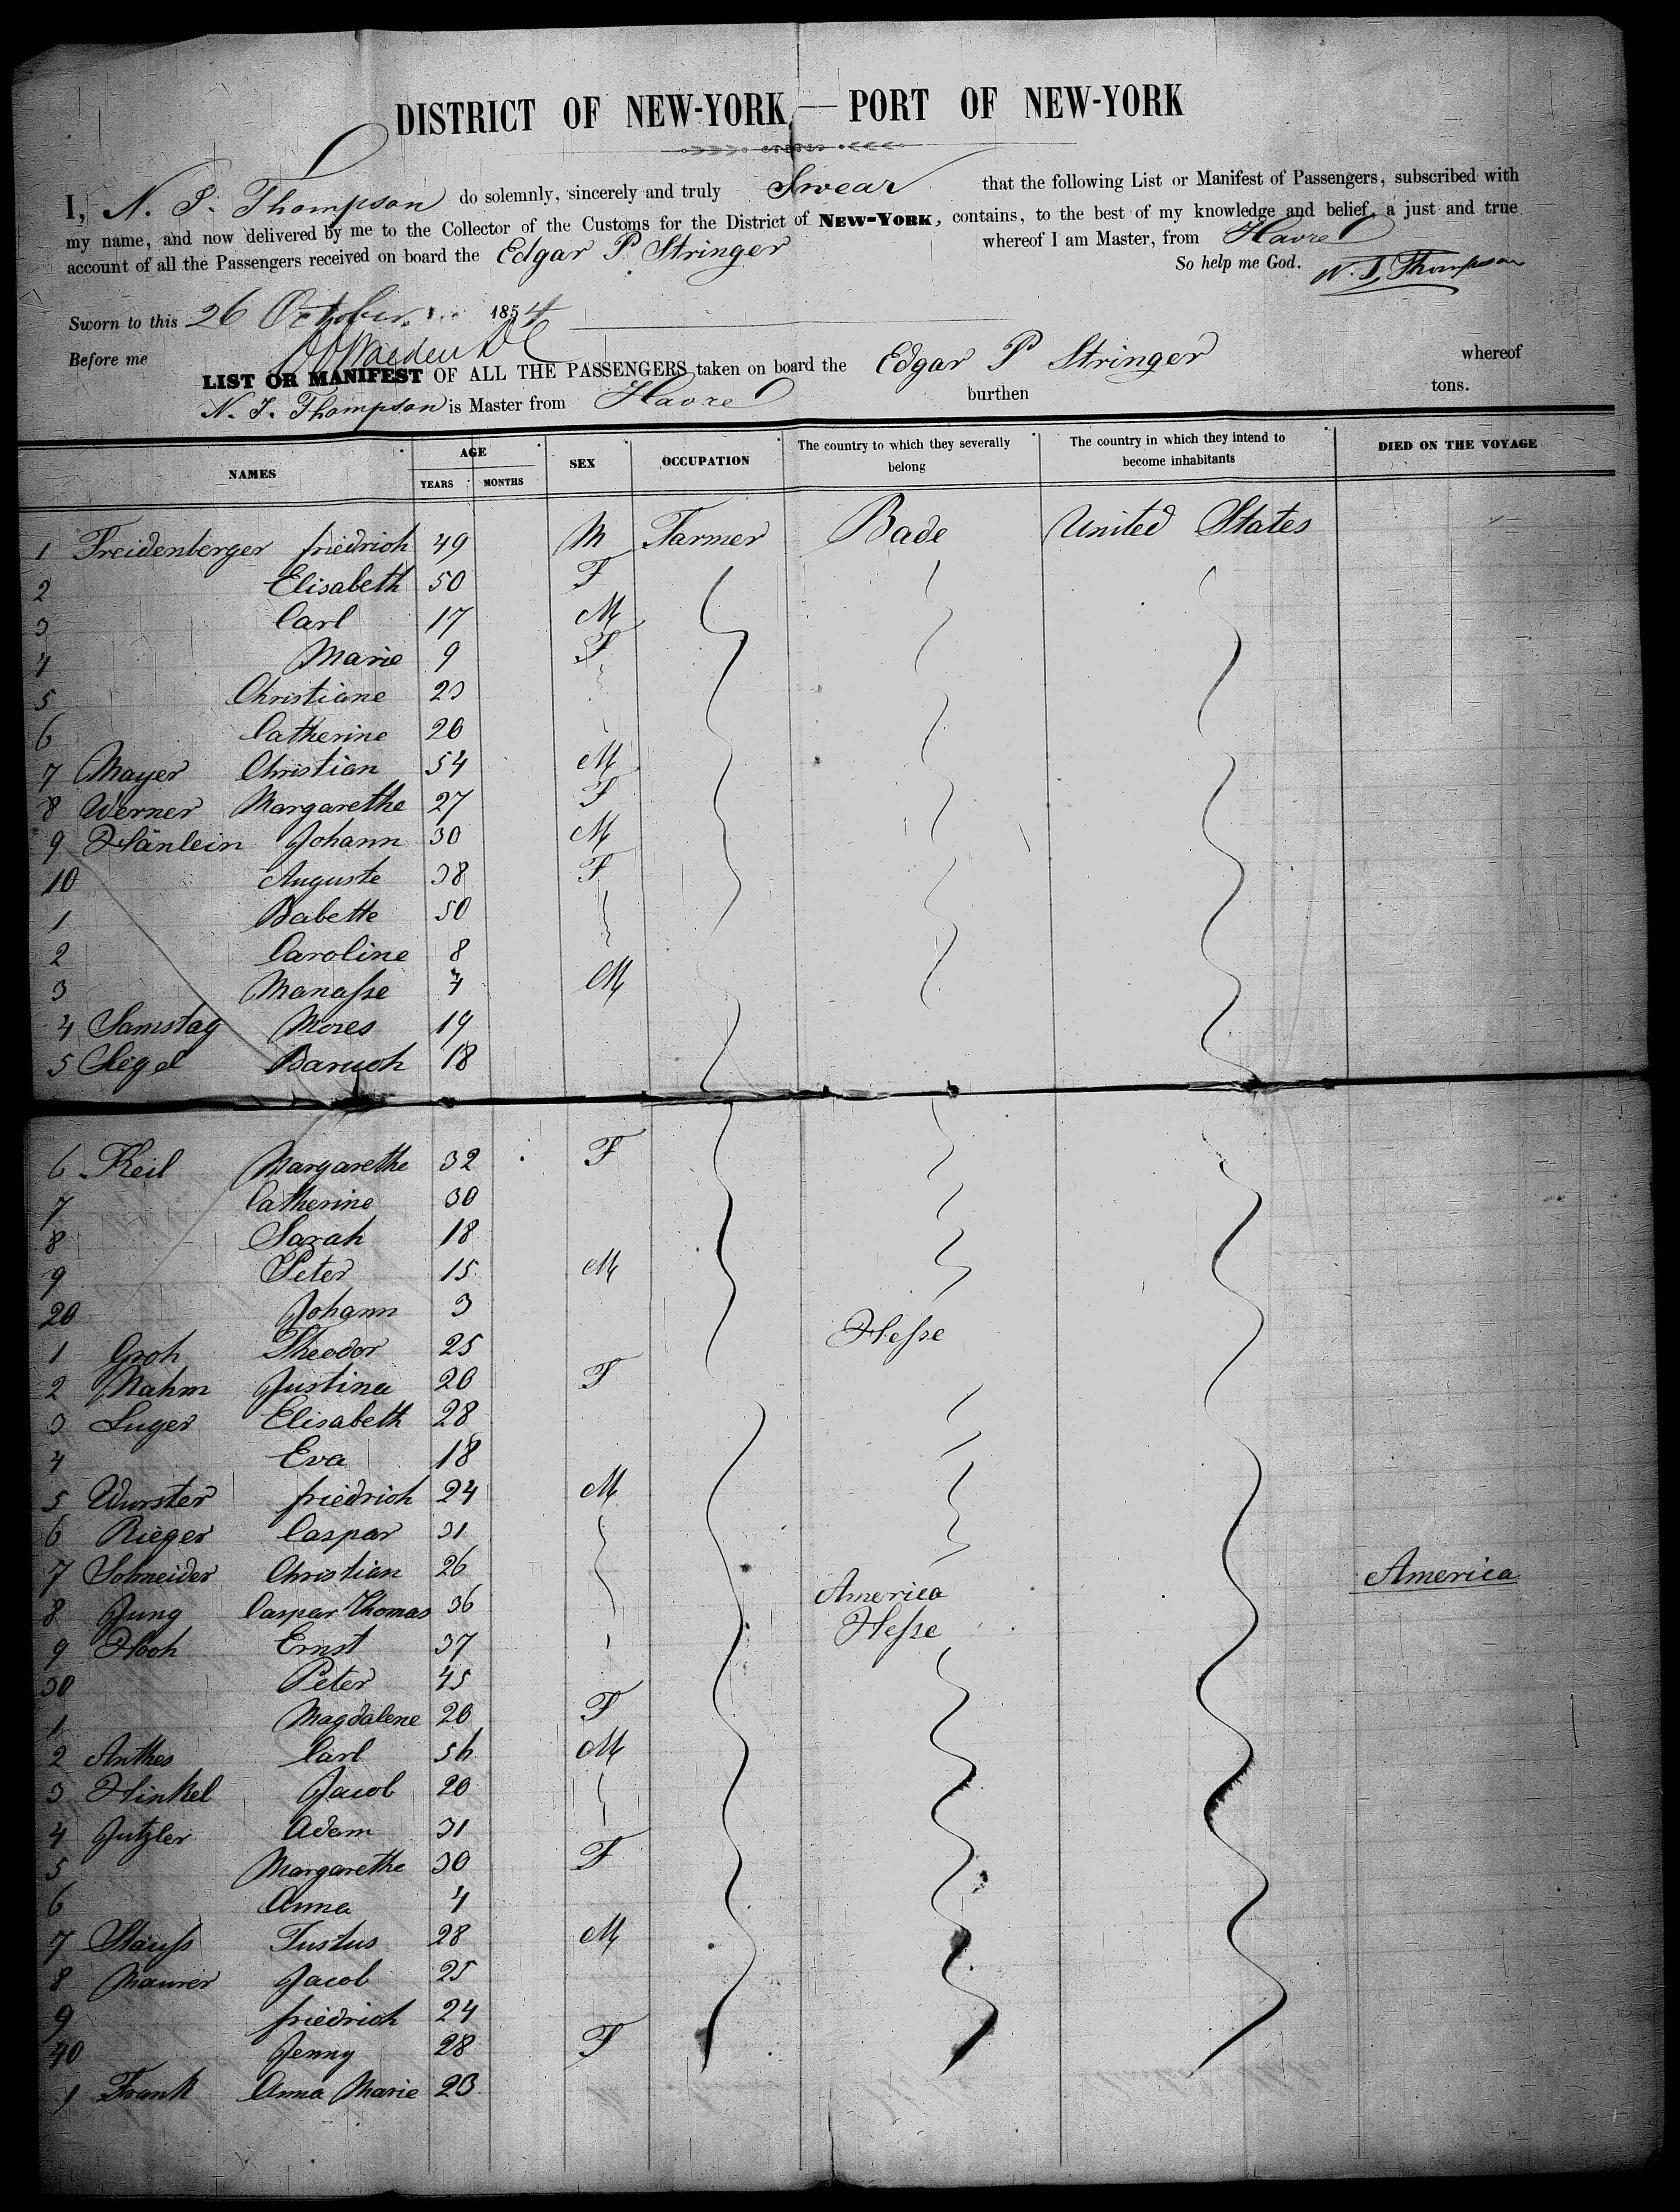 DISTRICT OF NEW-YORK, — PORT OF NEW-YORK
I, N. J. Thompson do solemnly, sincerely and truly Swear that the following List or Manifest of Passengers, subscribed with
my name, and now delivered by me to the Collector of the Customs for the District of NEW-YORK, contains, to the best of my knowledge and belief, a just and true
account of all the Passengers received on board the Edgar P. Stringer whereof I am Master, from Havre
So help me God. N. J. Thompson
Sworn to this 26 October 1854
Before me
LIST OR MANIFEST OF ALL THE PASSENGERS taken on board the Edgar P Stringer whereof
N. J. Thompson is Master from Havre burthen tons.
NAMES AGE YEARS MONTHS SEX OCCUPATION The country to which they severally belong The country in which they intend to become inhabitants DIED ON THE VOYAGE
1 Freidenberger friedrich 49 M Farmer Bade United States
2 Elisabeth 50 F
3 Carl 17 M
4 Marie 9 F
5 Christiane 23
6 Catherine 20
7 Mayer Christian 54 M
8 Werner Margarethe 27 F
9 Hänlein Johann 30 M
10 Auguste 38 F
1 Babette 50
2 Caroline 8
3 Manasse 4 M
4 Samstag Moses 19
5 Siegel Baruch 18
6 Keil Margarethe 32 F
7 Catherine 30
8 Sarah 18
9 Peter 15 M
20 Johann 3
1 Groh Theodor 25 Hesse
2 Nahm Justina 20 F
3 Luger Elisabeth 28
4 Eva 18
5 Wurster friedrich 24 M
6 Rieger Caspar 31
7 Schneider Christian 26 America
8 Jung Caspar Thomas 36 America
9 Hoch Ernst 37 Hesse
30 Peter 45
1 Magdalene 20 F
2 Anthes Carl 56 M
3 Hinkel Jacob 20
4 Jutzler Adam 31
5 Margarethe 30 F
6 Anna 4
7 Stauss Justus 28 M
8 Maurer Jacob 25
9 friedrich 24
40 Jenny 28 F
1 Frank Anna Marie 23